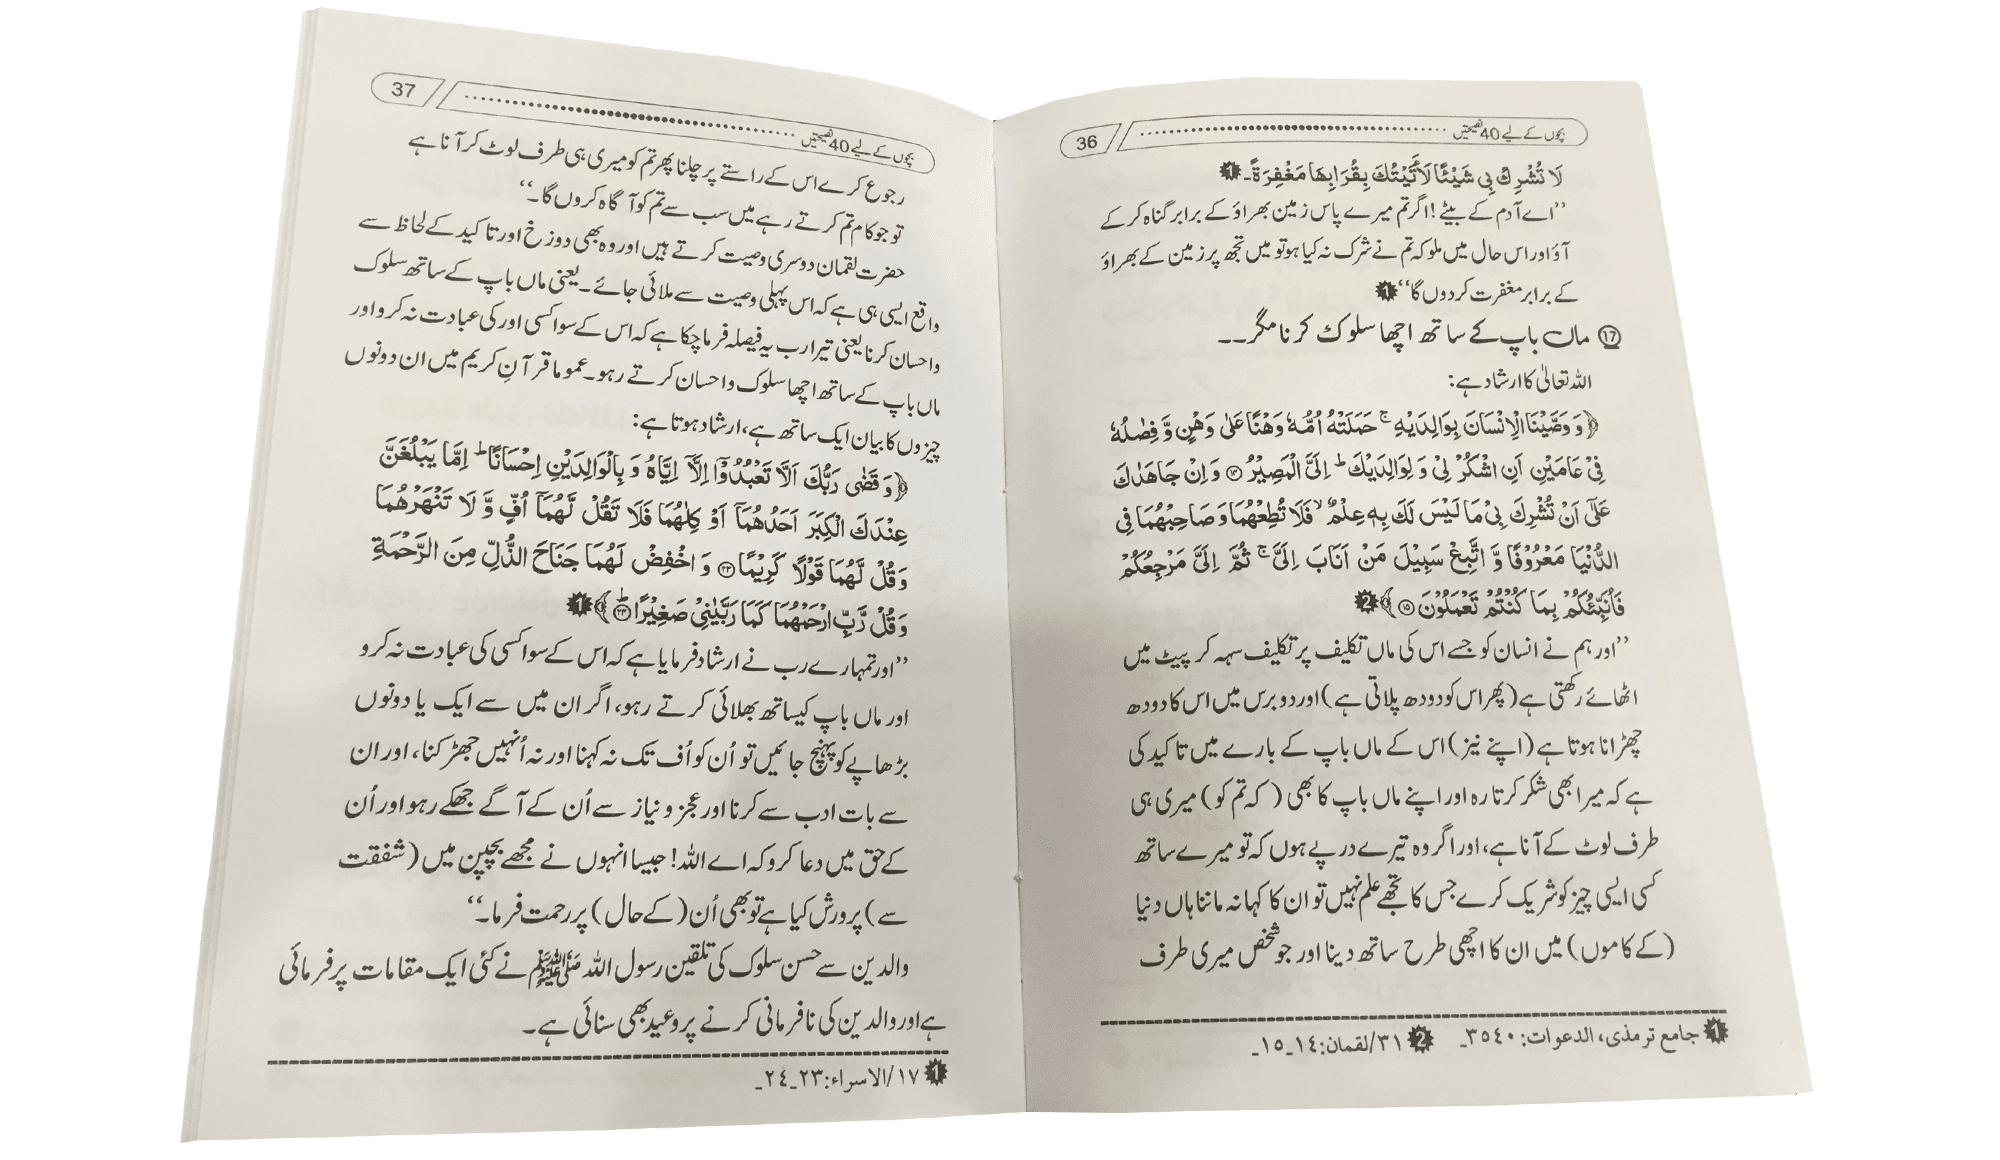 بچوں کے لیے 40 نصیحتیں 36
لَا تُشْرِكُ بِي شَيْئًا لَأَتَيْتُكَ بِقُرَابِهَا مَغْفِرَةً۔ 1
’’اے آدم کے بیٹے! اگر تم میرے پاس زمین بھراؤ کے برابر گناہ کر کے
آؤ اور اس حال میں ملو کہ تم نے شرک نہ کیا ہو تو میں تجھ پر زمین کے بھراؤ
کے برابر مغفرت کردوں گا‘‘ 1
⑰ ماں باپ کے ساتھ اچھا سلوک کرنا مگر۔۔
اللہ تعالیٰ کا ارشاد ہے:
﴿وَ وَصَّيْنَا الْاِنْسَانَ بِوَالِدَيْهِ ۚ حَمَلَتْهُ اُمُّهٗ وَهْنًا عَلٰى وَهْنٍ وَّ فِصٰلُهٗ
فِیْ عَامَيْنِ اَنِ اشْكُرْ لِیْ وَ لِوَالِدَيْكَ ؕ اِلَیَّ الْمَصِيْرُ ۝۱۴ وَ اِنْ جَاهَدٰكَ
عَلٰۤى اَنْ تُشْرِكَ بِیْ مَا لَيْسَ لَكَ بِهٖ عِلْمٌ ۙ فَلَا تُطِعْهُمَا وَ صَاحِبْهُمَا فِی
الدُّنْيَا مَعْرُوْفًا وَّ اتَّبِعْ سَبِيْلَ مَنْ اَنَابَ اِلَیَّ ۚ ثُمَّ اِلَیَّ مَرْجِعُكُمْ
فَاُنَبِّئُكُمْ بِمَا كُنْتُمْ تَعْمَلُوْنَ ۝۱۵﴾ 2
’’اور ہم نے انسان کو جسے اس کی ماں تکلیف پر تکلیف سہہ کر پیٹ میں
اٹھائے رکھتی ہے (پھر اس کو دودھ پلاتی ہے) اور دو برس میں اس کا دودھ
چھڑانا ہوتا ہے (اپنے نیز) اس کے ماں باپ کے بارے میں تاکید کی
ہے کہ میرا بھی شکر کرتا رہ اور اپنے ماں باپ کا بھی (کہ تم کو) میری ہی
طرف لوٹ کے آنا ہے، اور اگر وہ تیرے درپے ہوں کہ تو میرے ساتھ
کسی ایسی چیز کو شریک کرے جس کا تجھے علم نہیں تو ان کا کہا نہ ماننا ہاں دنیا
(کے کاموں) میں ان کا اچھی طرح ساتھ دینا اور جو شخص میری طرف
1 جامع ترمذی، الدعوات: ۳۵۴۰۔ 2 ۳۱/لقمان: ۱۴۔۱۵۔
بچوں کے لیے 40 نصیحتیں 37
رجوع کرے اس کے راستے پر چلنا پھر تم کو میری ہی طرف لوٹ کر آنا ہے
تو جو کام تم کرتے رہے میں سب سے تم کو آگاہ کروں گا۔‘‘
حضرت لقمان دوسری وصیت کرتے ہیں اور وہ بھی دوزخ اور تاکید کے لحاظ سے
واقع ایسی ہی ہے کہ اس پہلی وصیت سے ملائی جائے۔ یعنی ماں باپ کے ساتھ سلوک
واحسان کرنا یعنی تیرا رب یہ فیصلہ فرما چکا ہے کہ اس کے سوا کسی اور کی عبادت نہ کرو اور
ماں باپ کے ساتھ اچھا سلوک واحسان کرتے رہو۔ عموماً قرآنِ کریم میں ان دونوں
چیزوں کا بیان ایک ساتھ ہے، ارشاد ہوتا ہے:
﴿وَ قَضٰى رَبُّكَ اَلَّا تَعْبُدُوْۤا اِلَّاۤ اِيَّاهُ وَ بِالْوَالِدَيْنِ اِحْسَانًا ؕ اِمَّا يَبْلُغَنَّ
عِنْدَكَ الْكِبَرَ اَحَدُهُمَاۤ اَوْ كِلٰهُمَا فَلَا تَقُلْ لَّهُمَاۤ اُفٍّ وَّ لَا تَنْهَرْهُمَا
وَ قُلْ لَّهُمَا قَوْلًا كَرِيْمًا ۝۲۳ وَ اخْفِضْ لَهُمَا جَنَاحَ الذُّلِّ مِنَ الرَّحْمَةِ
وَ قُلْ رَّبِّ ارْحَمْهُمَا كَمَا رَبَّيٰنِیْ صَغِيْرًا ؕ ۝۲۴﴾ 1
’’اور تمہارے رب نے ارشاد فرمایا ہے کہ اس کے سوا کسی کی عبادت نہ کرو
اور ماں باپ کیساتھ بھلائی کرتے رہو، اگر ان میں سے ایک یا دونوں
بڑھاپے کو پہنچ جائیں تو اُن کو اُف تک نہ کہنا اور نہ اُنہیں جھڑکنا، اور ان
سے بات ادب سے کرنا اور عجز و نیاز سے اُن کے آگے جھکے رہو اور اُن
کے حق میں دعا کرو کہ اے اللہ! جیسا انہوں نے مجھے بچپن میں (شفقت
سے) پرورش کیا ہے تو بھی اُن (کے حال) پر رحمت فرما۔‘‘
والدین سے حسن سلوک کی تلقین رسول اللہ ﷺ نے کئی ایک مقامات پر فرمائی
ہے اور والدین کی نافرمانی کرنے پر وعید بھی سنائی ہے۔
1 ۱۷/الاسراء: ۲۳۔۲۴۔